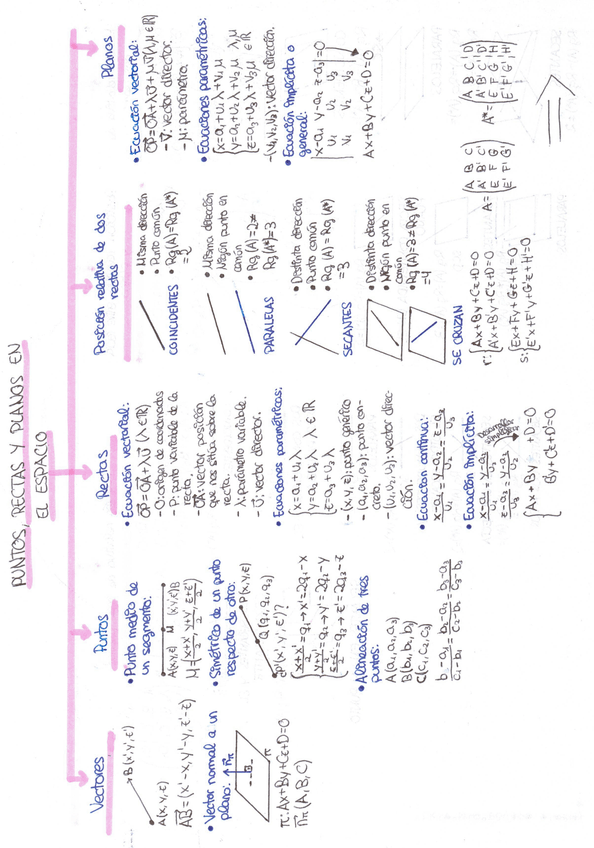 PUNTOS, RECTAS Y PLANOS EN
EL ESPACIO
Vectores
B(x',y',z')
A(x,y,z)
AB=(x'-x,y'-y,z'-z)
• Vector normal a un
plano:
n⃗π
π
π: Ax+By+Cz+D=0
n⃗π (A,B,C)
Puntos
• Punto medio de
un segmento:
A(x,y,z) M (x',y',z')B
M=(x+x'/2, y+y'/2, z+z'/2)
• Simétrico de un punto
respecto de otro:
P(x,y,z)
Q(q₁,q₂,q₃)
P'(x',y',z')??
x+x'/2=q₁→x'=2q₁-x
y+y'/2=q₂→y'=2q₂-y
z+z'/2=q₃→z'=2q₃-z
• Alineación de tres
puntos:
A(a₁,a₂,a₃)
B(b₁,b₂,b₃)
C(c₁,c₂,c₃)
b₁-a₁/c₁-b₁=b₂-a₂/c₂-b₂=b₃-a₃/c₃-b₃
Rectas
• Ecuación vectorial:
OP=OA+λU⃗ (λ∈ℝ)
- O: origen de coordenadas
- P: punto variable de la
recta.
- OA: vector posición
que nos sitúa sobre la
recta.
- λ: parámetro variable.
- U⃗: vector director.
• Ecuaciones paramétricas:
x=a₁+u₁λ
y=a₂+u₂λ λ∈ℝ
z=a₃+u₃λ
- (x,y,z): punto genérico
- (a₁,a₂,a₃): punto con-
creto.
- (u₁,u₂,u₃): vector direc-
ción.
• Ecuación continua:
x-a₁/u₁=y-a₂/u₂=z-a₃/u₃
• Ecuación implícita:
x-a₁/u₁=y-a₂/u₂
z-a₃/u₃=y-a₂/u₂
Ax+By +D=0
By+Cz+D'=0
Posición relativa de dos
rectas
• Misma dirección
• Punto común
• Rg(A)=Rg(A*)
=2
COINCIDENTES
• Misma dirección
• Ningún punto en
común
• Rg(A)=2≠
Rg(A*)=3
PARALELAS
• Distinta dirección
• Punto común
• Rg(A)=Rg(A*)
=3
SECANTES
• Distinta dirección
• Ningún punto en
común
• Rg(A)=3≠Rg(A*)
=4
SE CRUZAN
r: Ax+By+Cz+D=0
A'x+B'y+C'z+D'=0
s: Ex+Fy+Gz+H=0
E'x+F'y+G'z+H'=0
A= (A B C
A' B' C'
E F G
E' F' G')
A*= (A B C D
A' B' C' D'
E F G H
E' F' G' H')
Planos
• Ecuación vectorial:
OP=OA+λU⃗+μV⃗(λ,μ∈ℝ)
- V⃗: vector director.
- μ: parámetro.
• Ecuaciones paramétricas:
x=a₁+u₁λ+v₁μ
y=a₂+u₂λ+v₂μ λ,μ
z=a₃+u₃λ+v₃μ ∈ℝ
- (v₁,v₂,v₃): vector dirección.
• Ecuación implícita o
general:
x-a₁ y-a₂ z-a₃
u₁ u₂ u₃ =0
v₁ v₂ v₃
Ax+By+Cz+D=0